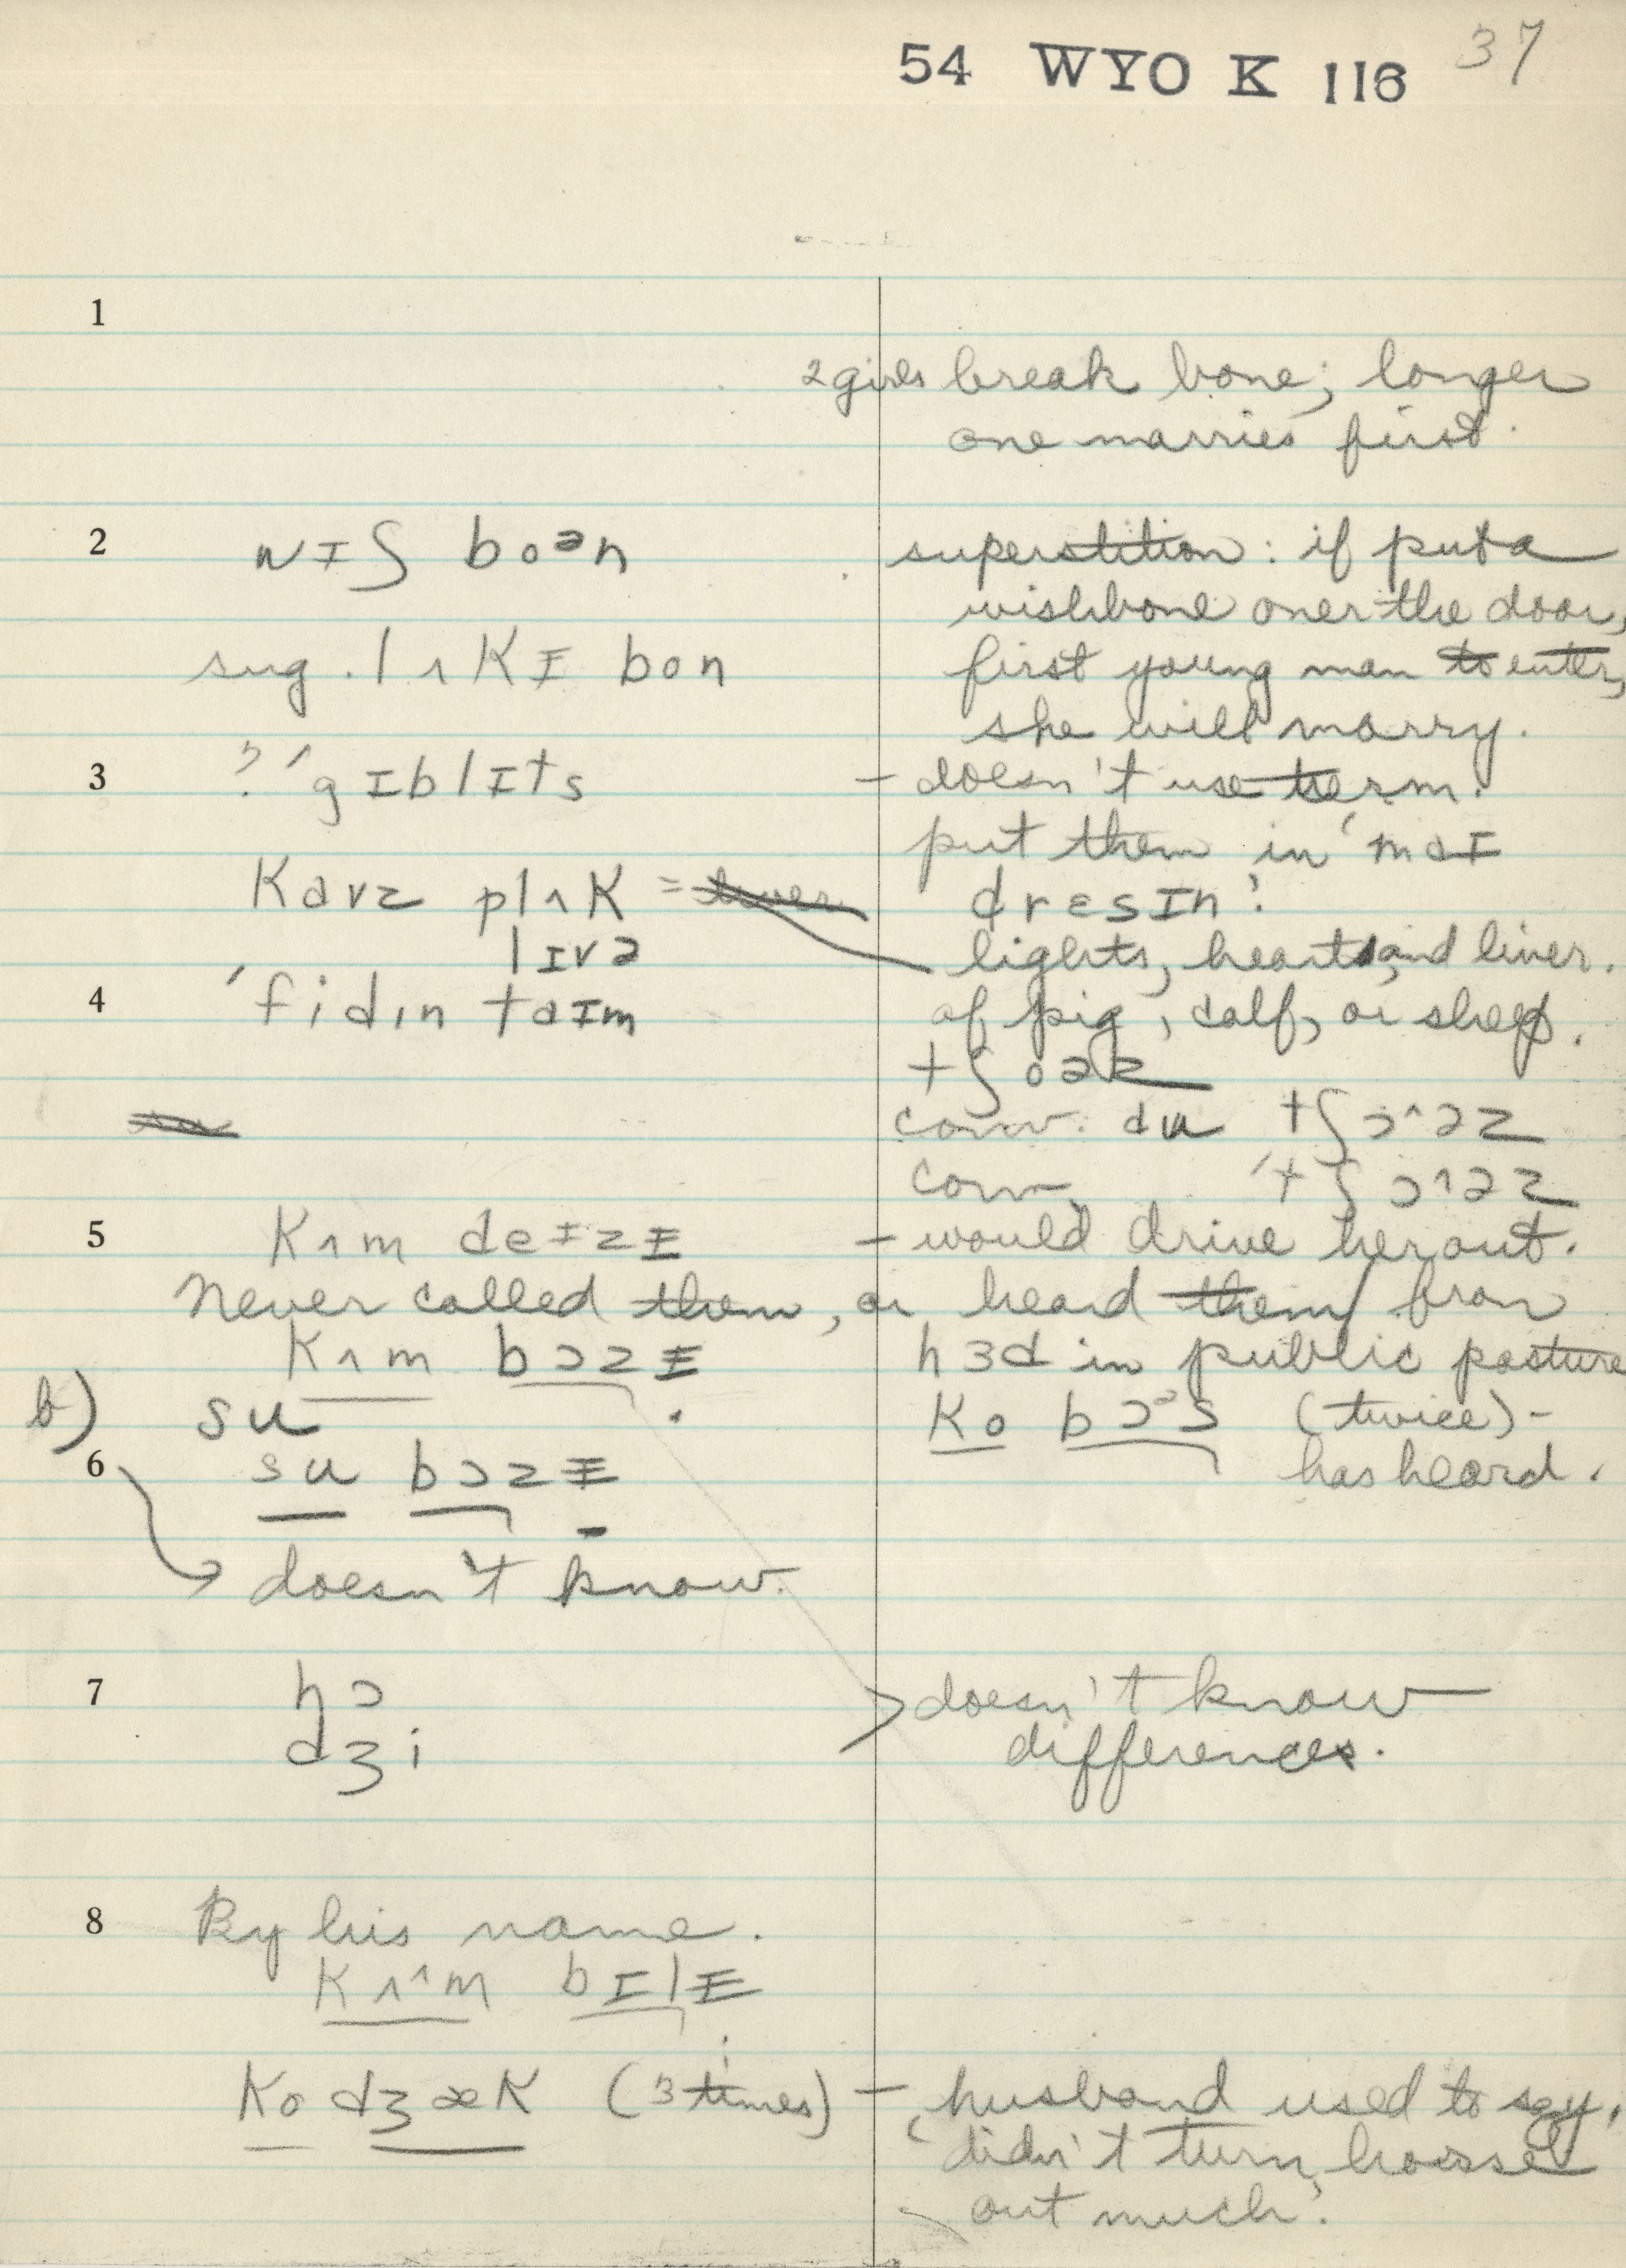 54 WYO K 116 37
1
2 girls break bone; longer
one marries first.
2 wɪʃ boən superstition: if put a
wishbone over the door,
sug. lʌkɪ bon first young man to enter,
she will marry.
3 ?'gɪblɪts – doesn't use term.
put them in 'maɪ
kavz plʌk = liver dresɪn'.
lɪvə lights, heart, and liver.
4 'fidɪn taɪm of pig, calf, or sheep.
tʃoəz
conv. du tʃɔ^əz
conv. 'tʃɔ^əz
5 kʌm deɪzɪ – would drive her out.
Never called them, or heard them from
kʌm bɔzɪ hɜd in public pasture
b) su ko bɔᵊs (twice) –
6 su bɔzɪ has heard.
doesn't know.
7 hɔ > doesn't know
dʒi differences.
8 By his name.
kʌ^m bɪlɪ
ko dʒæk (3 times) – 'husband used to say,
didn't turn horses
out much'.